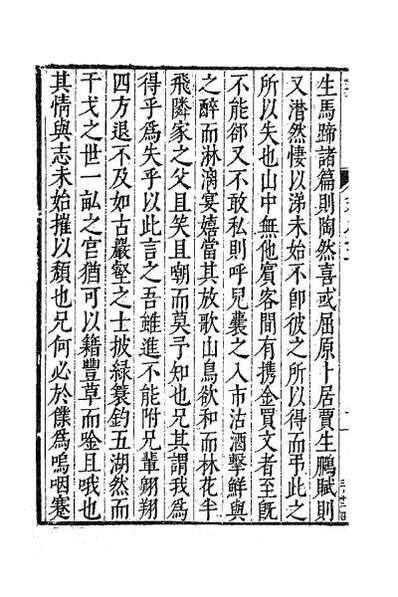 生馬蹄諸篇則陶然喜或屈原卜居賈生鵩賦則
又潸然悽以涕未始不卽彼之所以得而弔此之
所以失也山中無他賓客間有携金買文者至旣
不能卻又不敢私則呼兒囊之入市沽酒擊鮮與
之醉而淋漓宴嬉當其放歌山鳥欲和而林花半
飛隣家之父且笑且嘲而莫予知也兄其謂我爲
得乎爲失乎以此言之吾雖進不能附兄輩翱翔
四方退不及如古巖壑之士披綠簑釣五湖然而
干戈之世一畝之宫猶可以籍豐草而唫且哦也
其情與志未始摧以頹也兄何必於僕爲嗚咽蹇